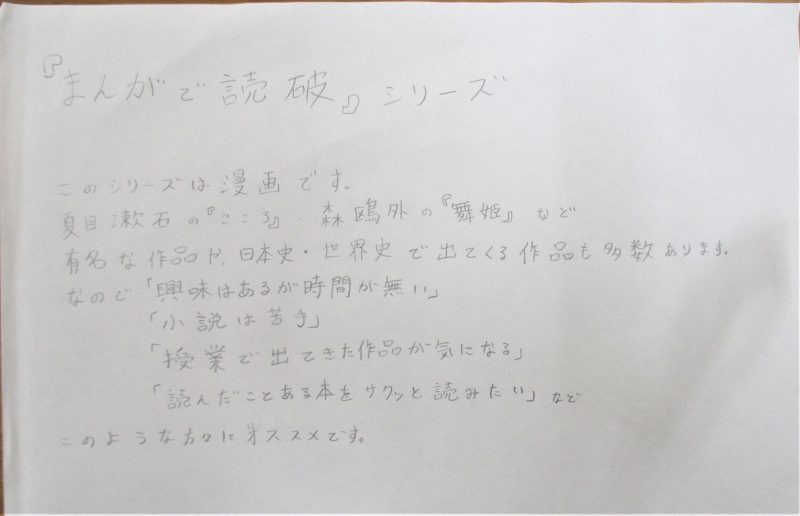 『まんがで読破』シリーズ
このシリーズは漫画です。
夏目漱石の『こころ』・森鴎外の『舞姫』など
有名な作品や、日本史・世界史で出てくる作品も多数あります。
なので「興味はあるが時間が無い」
「小説は苦手」
「授業で出てきた作品が気になる」
「読んだことある本をサクッと読みたい」など
このような方々にオススメです。